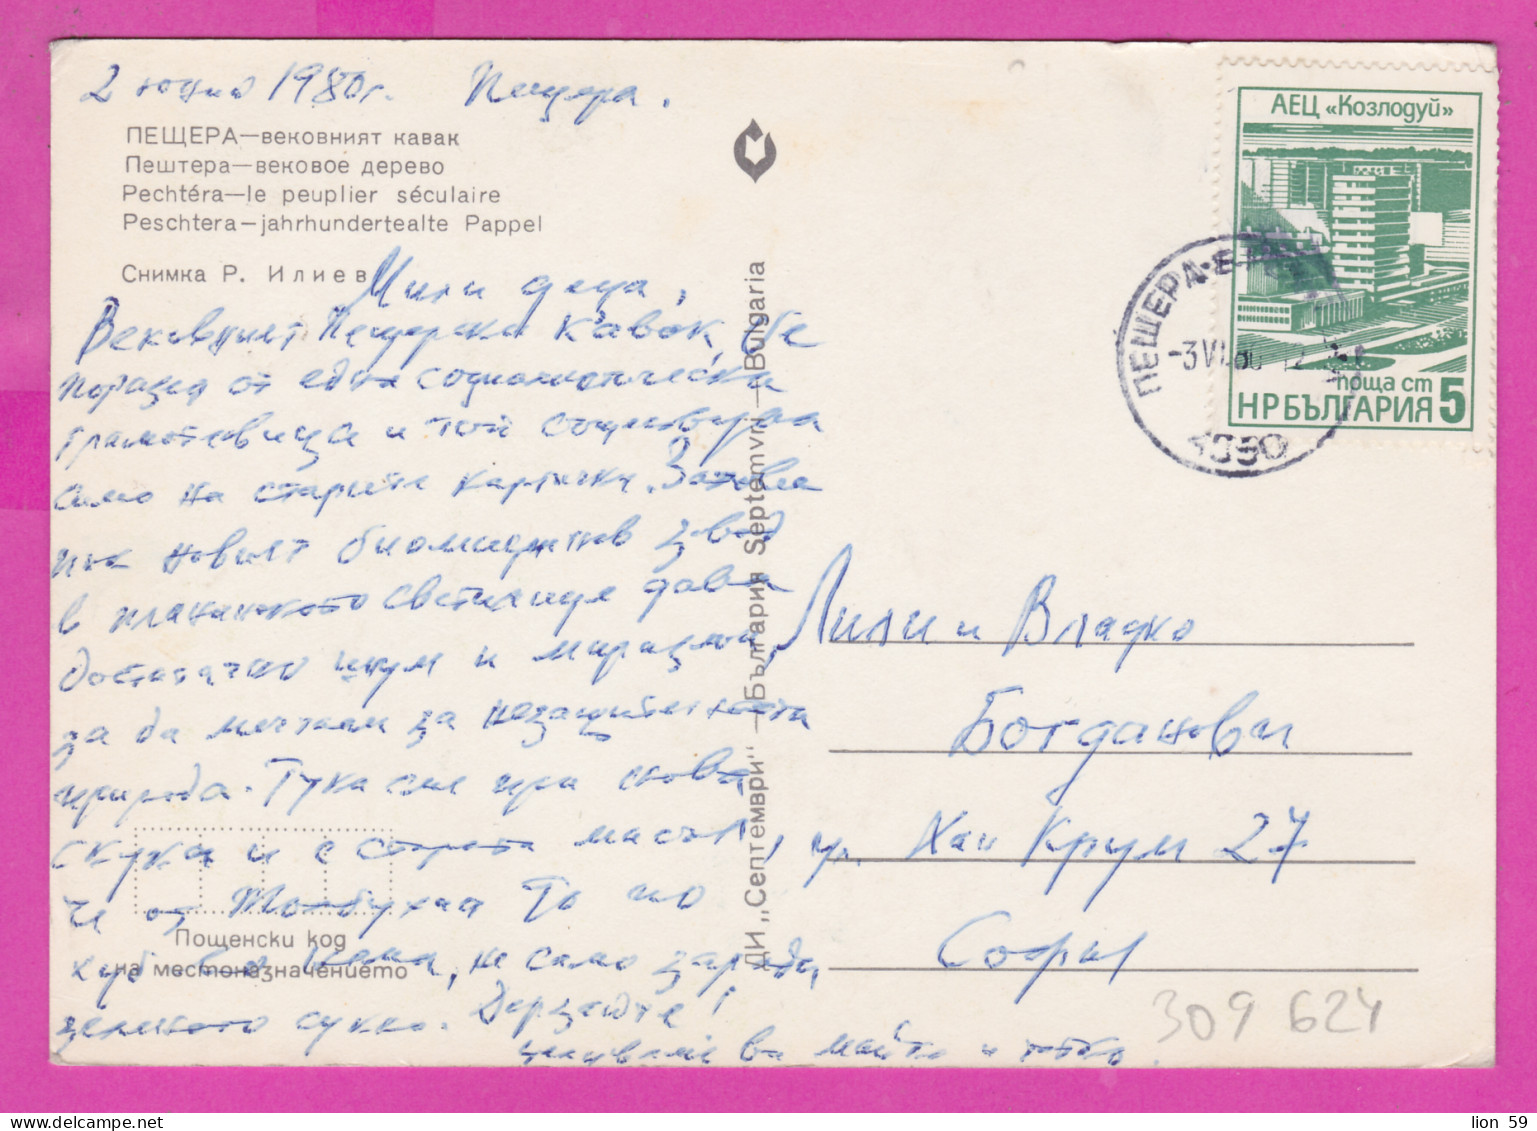 2 юни 1980г. Пещера.
ПЕЩЕРА—вековният кавак
Пештера—вековое дерево
Pechtéra—le peuplier séculaire
Peschtera—jahrhundertealte Pappel
Снимка Р. Илиев
Мили деца,
Вековният Пещерски кавак, бе
поразен от една социалистическа
гръмотевица и той съществува
само на старите картички. Затова
пък новият биохимически завод
в планинското светилище дава
достатъчно шум и миризма,
за да мечтаем за незащитената
природа. Тука сме при
скука и с старата
че от Толбухин то по
хуб, не само заради
зеленото сукно. Дерзайте!
целуваме ви майка и татко.
Пощенски код
на местоназначението
ДИ „Септември" — България Septemvri — Bulgaria
АЕЦ «Козлодуй»
поща ст 5
НРБЪЛГАРИЯ
ПЕЩЕРА
-3 VI.80 12
Лили и Владко
Богданови
ул. Хан Крум 27
София
309 624
lion 59